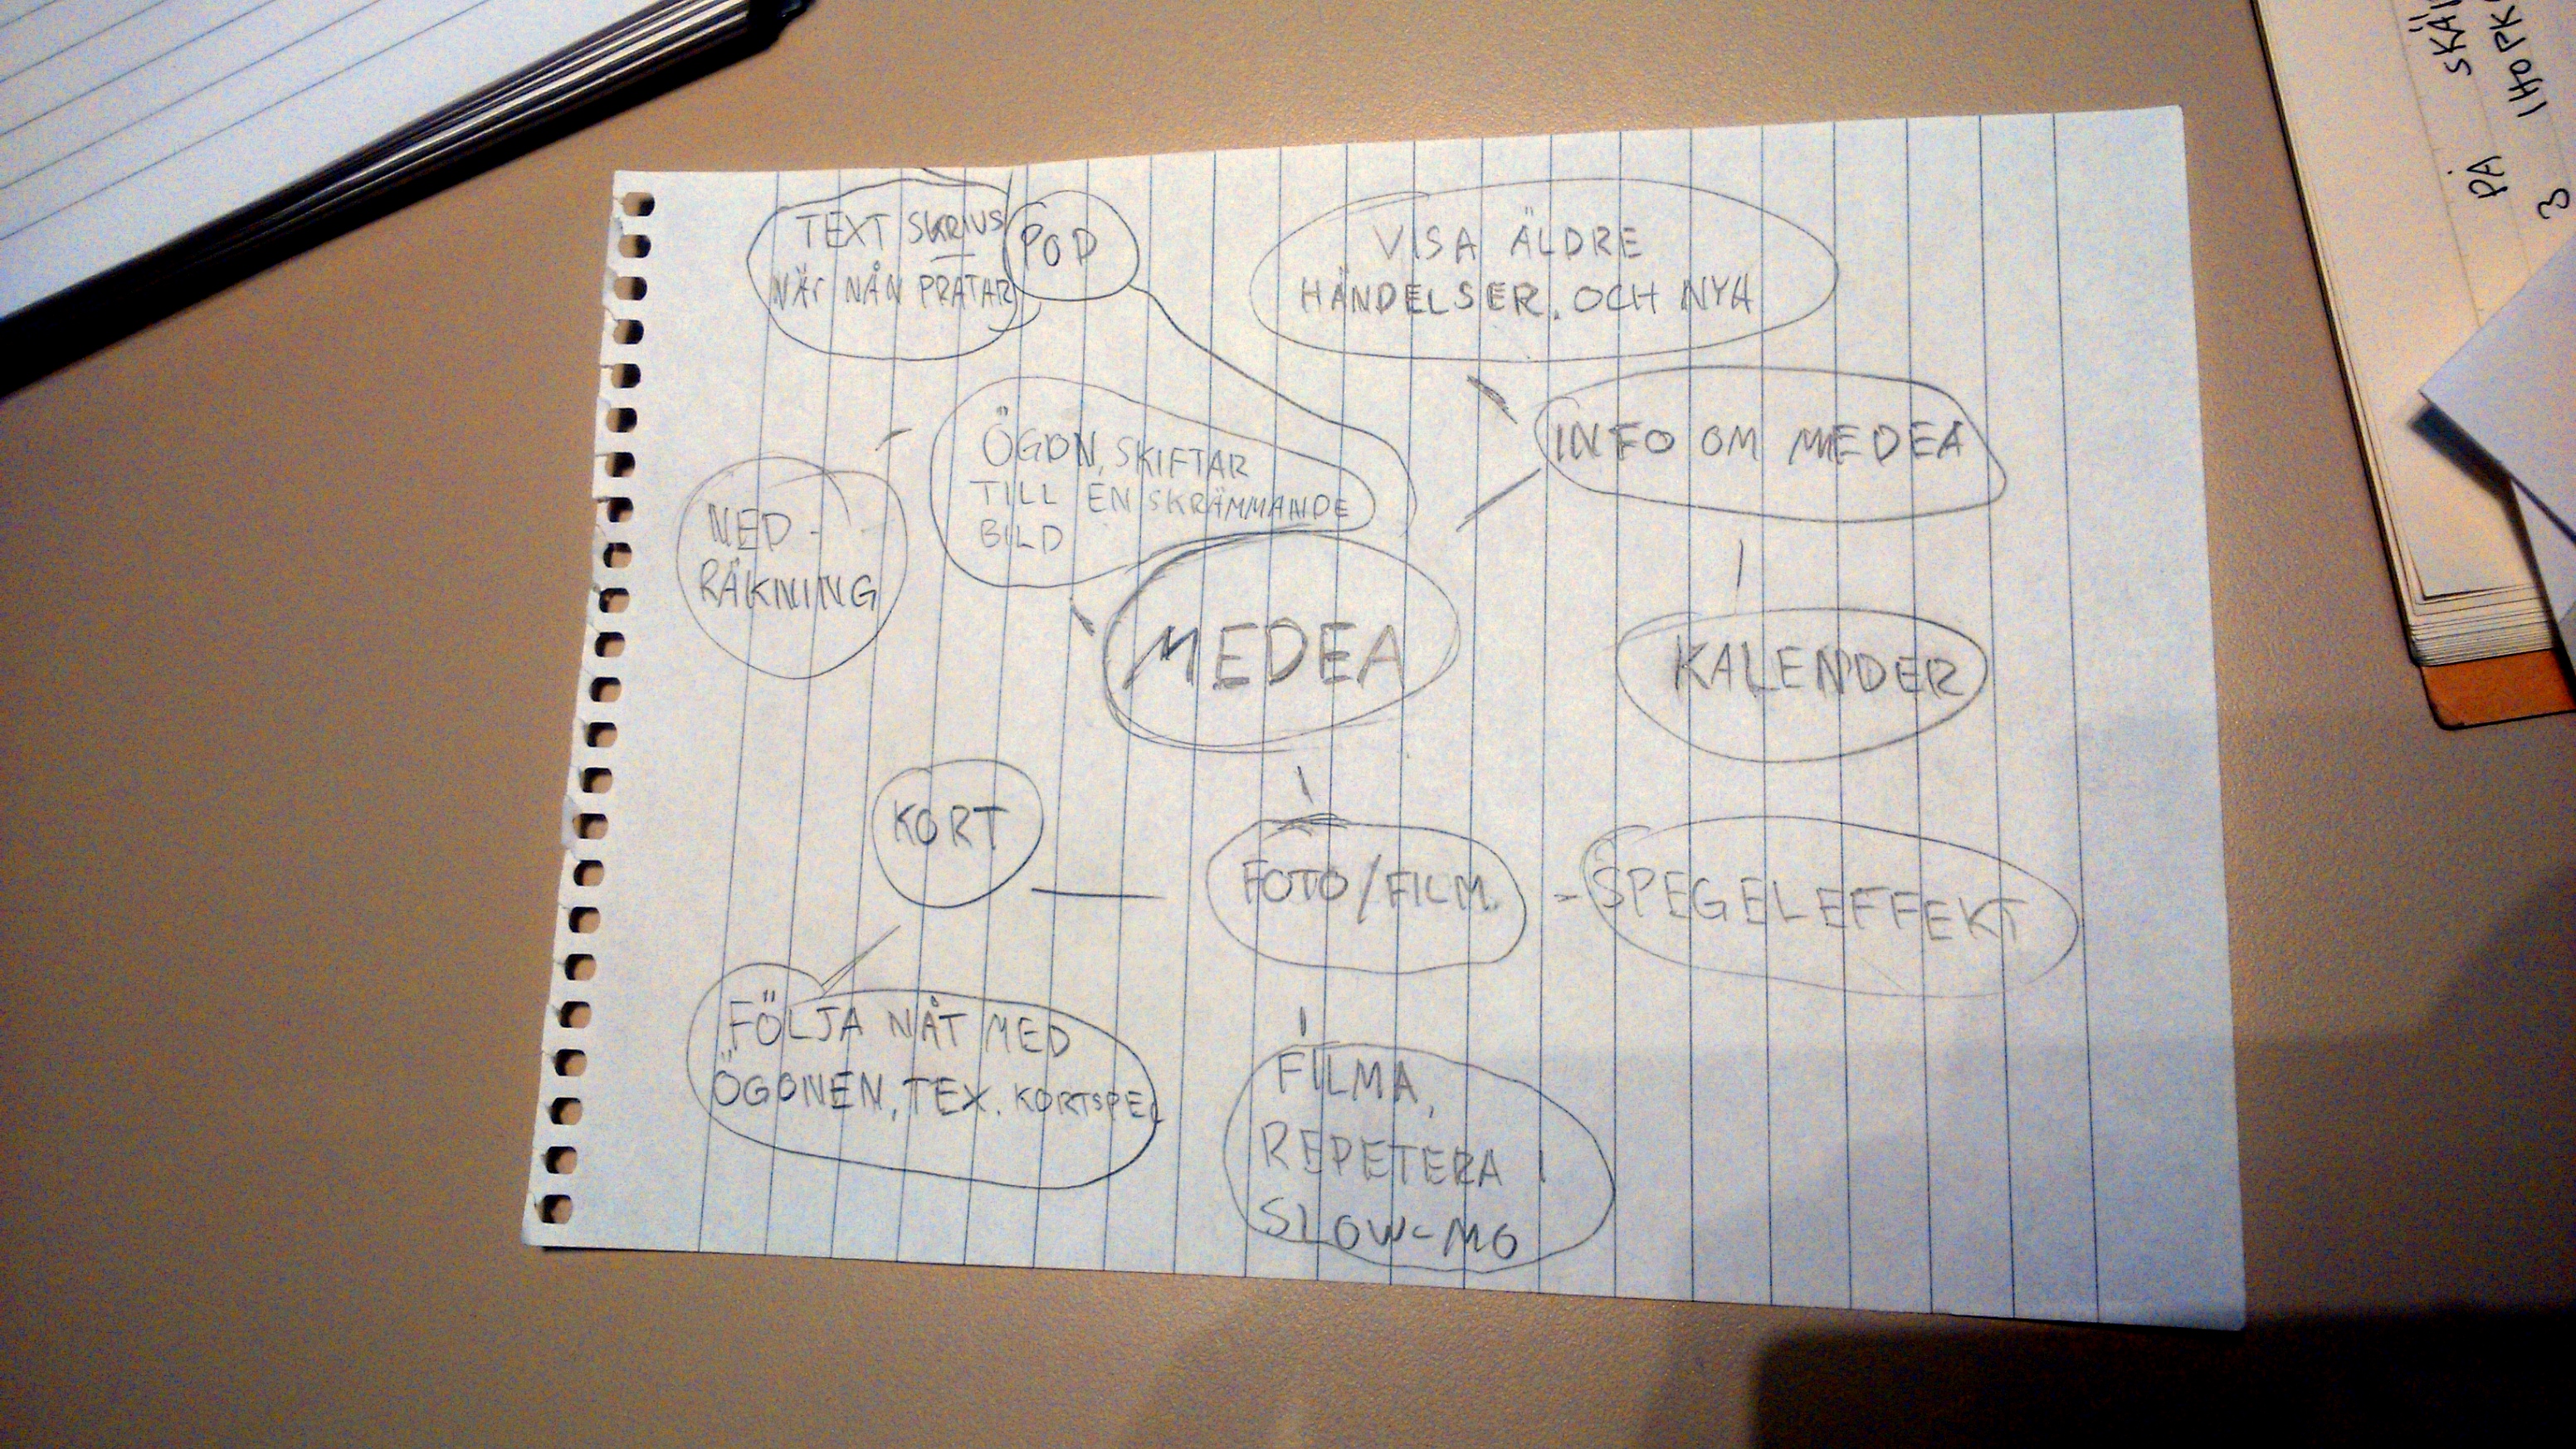 TEXT SKRIVS
NÄR NÅN PRATAR
POD
VISA ÄLDRE
HÄNDELSER. OCH NYA
ÖGON, SKIFTAR
TILL EN SKRÄMMANDE
BILD
INFO OM MEDEA
NED-
RÄKNING
MEDEA
KALENDER
KORT
FOTO/FILM.
SPEGELEFFEKT
FÖLJA NÅT MED
ÖGONEN, TEX. KORTSPEL
FILMA,
REPETERA I
SLOW-MO
PÅ
3